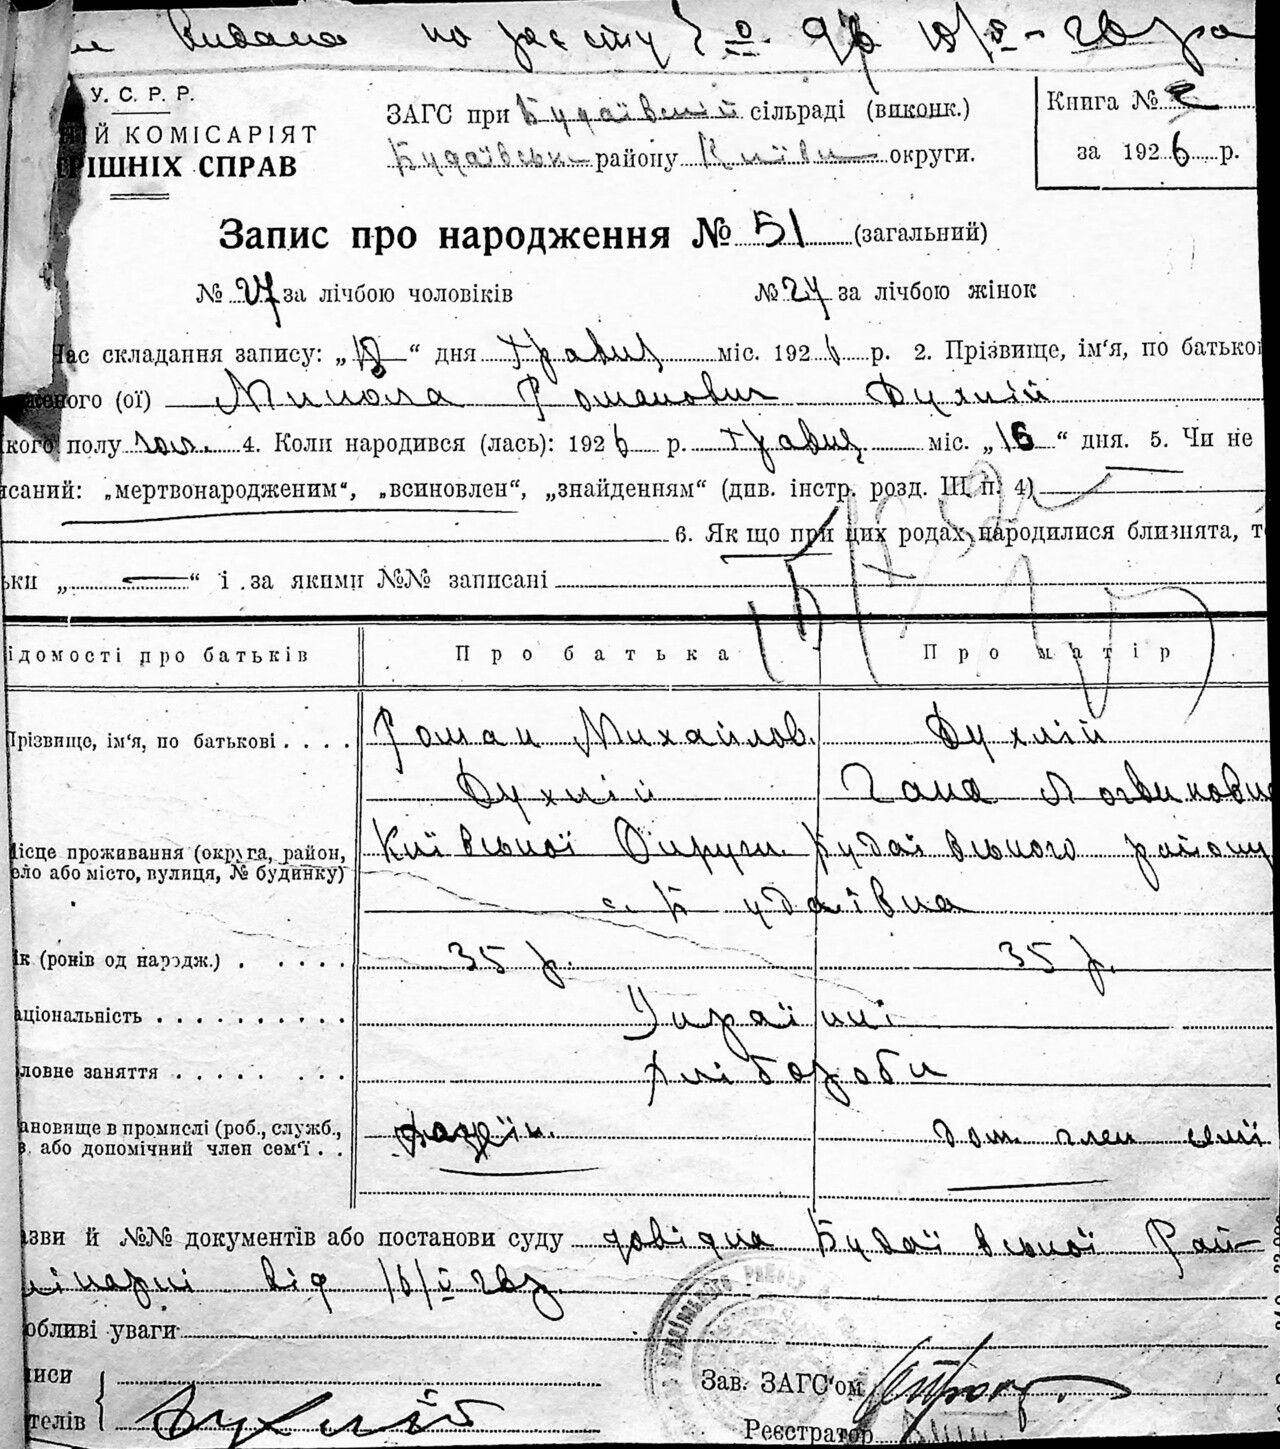 Видана по
У. С. Р. Р.
ИЙ КОМІСАРІЯТ
РІШНІХ СПРАВ
ЗАГС при Будаївській сільраді (виконк.)
Будаївськ району Київськ округи.
Книга №
за 1926 р.
Запис про народження № 51 (загальний)
№ 27 за лічбою чоловіків
№ 24 за лічбою жінок
Час складання запису: „18“ дня травня міс. 1926 р. 2. Прізвище, ім‘я, по батькові
женого (ої) Микола Романович Духній
кого полу чол. 4. Коли народився (лась): 1926 р. травня міс. „16“ дня. 5. Чи не
исаний: „мертвонародженим“, „всиновлен“, „знайденням“ (див. інстр. розд. III п. 4)
6. Як що при цих родах народилися близнята, т
ьки „ — “ і за якими №№ записані
ідомості про батьків
Про батька
Про матір
Прізвище, ім‘я, по батькові
Роман Михайлов.
Духній
Духній
Гана Логвиновна
Місце проживання (округа, район,
ело або місто, вулиця, № будинку)
Київської Округи Будаївського району
с. Будаївка
ік (років од народж.)
35 р.
35 р.
аціональність
Україн­ці
ловне заняття
Хлібороби
ановище в промислі (роб., служб.,
в. або допомічний член сем‘ї
хазяїн.
доп. член семї
азви й №№ документів або постанови суду довідка Будаївської Рай-
лікарні від 16/V 26 р.
обливі уваги
писи
телів
Духній
Зав. ЗАГС‘ом
Реєстратор